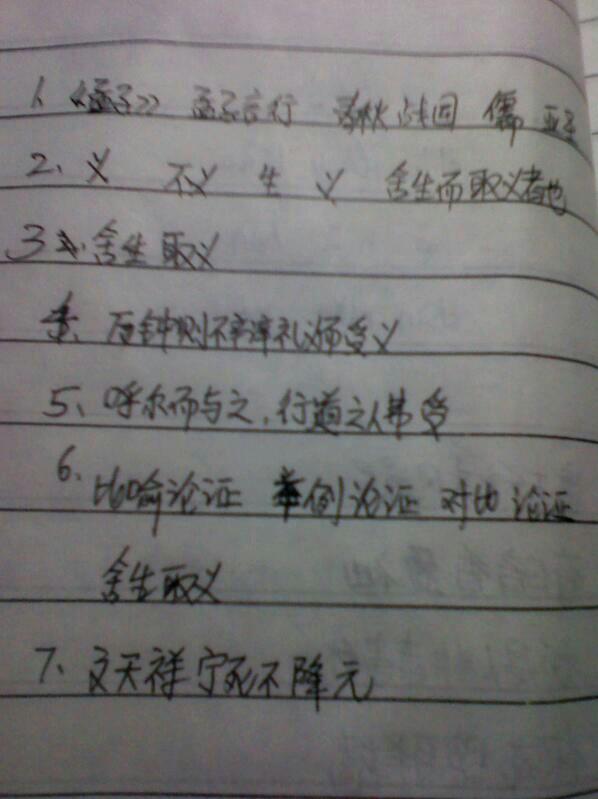 1、《孟子》 孟子言行 春秋战国 儒 亚圣
2、义 不义 生 义 舍生而取义者也
3、舍生取义
万钟则不辩礼义而受义
5、呼尔而与之,行道之人弗受
6、比喻论证 举例论证 对比论证
舍生取义
7、文天祥宁死不降元